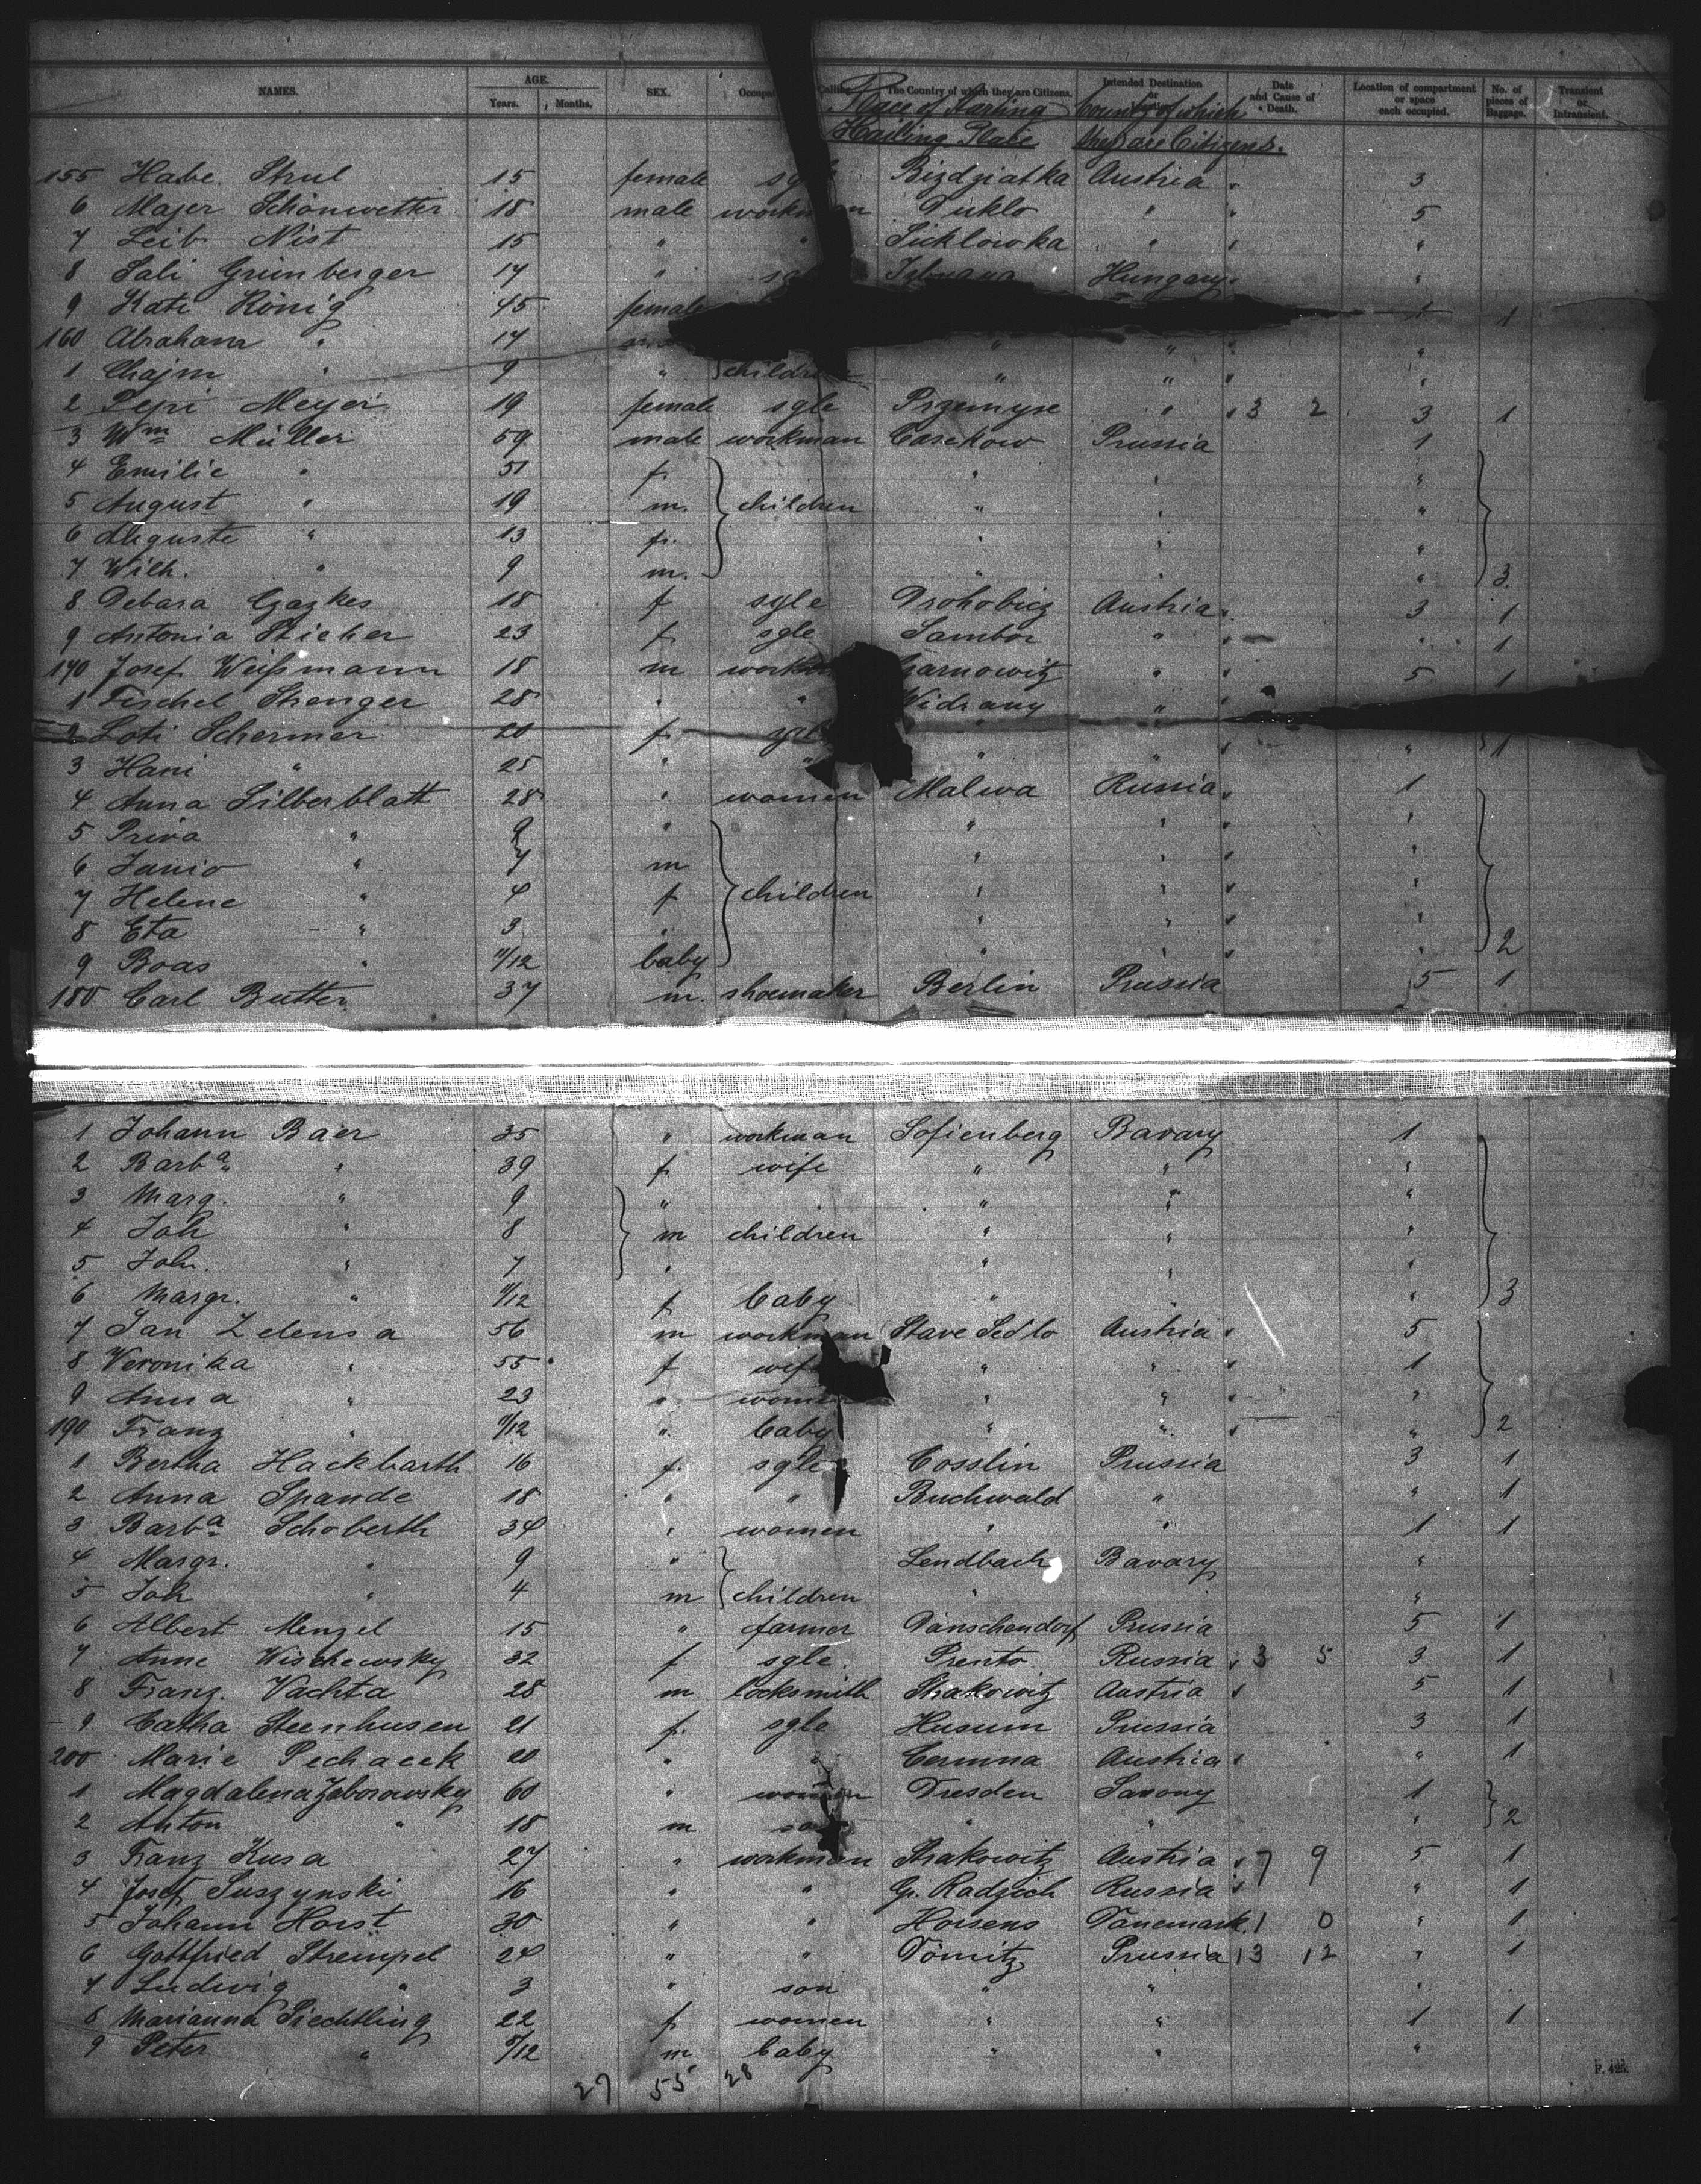 NAMES. AGE. Years. Months. SEX. Occupa Calling The Country of which they are Citizens. Intended Destination or Date and Cause of Death. Location of compartment or space each occupied. No. of pieces of Baggage. Transient or Intransient.
Place of Starting Country of which
Hailing State they are Citizens.
155 Habe. Strul 15 female Bizdziatka Austria 3
6 Majer Schönwetter 18 male workman Duklo " 5
7 Leib Nist 15 " " Sicklowka " "
8 Sali Grünberger 17 " Hungary "
9 Kati König 45 female 1 1
160 Abraham " 14 " " "
1 Chajm " 9 " children " " "
2 Pepi Meyer 19 female sgle Przemysc " 3 2 3 1
3 Wm Müller 59 male workman Casekow Prussia 1
4 Emilie " 51 f. " " "
5 August " 19 m. children " " "
6 Auguste " 13 f. " " "
7 Wilh. " 9 m. " " " 3
8 Debara Czazkes 18 f sgle Drohobicz Austria 3 1
9 Antonia Sticher 23 f. sgle Sambor " " 1
170 Josef Weißmann 18 m workm arnowitz " 5 1
1 Fischel Strenger 28 " " Widrany "
2 Loti Schermer 20 f. " " 1
3 Hani " 25 " " " "
4 Anna Silberblatt 28 " women Malwa Russia 1
5 Priva " 9 " " " "
6 Janio " 7 m " " "
7 Helene " 4 f children " " "
8 Eta " 3 " " " "
9 Boas " 11/12 baby " " " 2
180 Carl Butter 37 m. shoemaker Berlin Prussia 5 1
1 Johann Baer 35 " workman Sofienberg Bavary 1
2 Barba " 39 f. wife " " "
3 Marg. " 9 " " " "
4 Joh " 8 m children " " "
5 Joh. " 7 " " " "
6 Margr. " 11/12 f baby " " " 3
7 Jan Zelensa 56 m workman Stare Sedlo Austria 5
8 Veronika " 55 f wife " " 1
9 Anna " 23 " women " " "
190 Franz " /12 " baby " " " 2
1 Bertha Hackbarth 16 f. sgle Cosslin Prussia 3 1
2 Anna Spande 18 " " Buchwald " " 1
3 Barba Schoberth 34 " women " " 1 1
4 Margr. " 9 " Lendbach Bavary "
5 Joh " 4 m children " "
6 Albert Menzel 15 " farmer Dänschendorf Prussia 5 1
7 Anne Wischewsky 32 f sgle. Prento Russia 3 5 3 1
8 Franz. Vachta 28 m locksmith Strakowitz Austria 5 1
9 Catha Steenhusen 21 f. sgle Husum Prussia 3 1
200 Marie Pechacek 20 " " Cermna Austria " 1
1 Magdalena Zaborowsky 60 " woman Dresden Saxony 1
2 Anton " 18 m son " " " 2
3 Franz Kusa 27 " workman Strakowitz Austria 7 9 5 1
4 Josef Suszynski 16 " " Gr. Radzich Russia " 1
5 Johann Horst 30 " " Horsens Dänemark 1 0 " 1
6 Gottfried Strempel 24 " " Dömitz Prussia 13 12 " 1
7 Ludwig " 3 " son " " "
8 Marianna Piechtling 22 f women " " 1 1
9 Peter " /12 m baby " " "
27 55 28